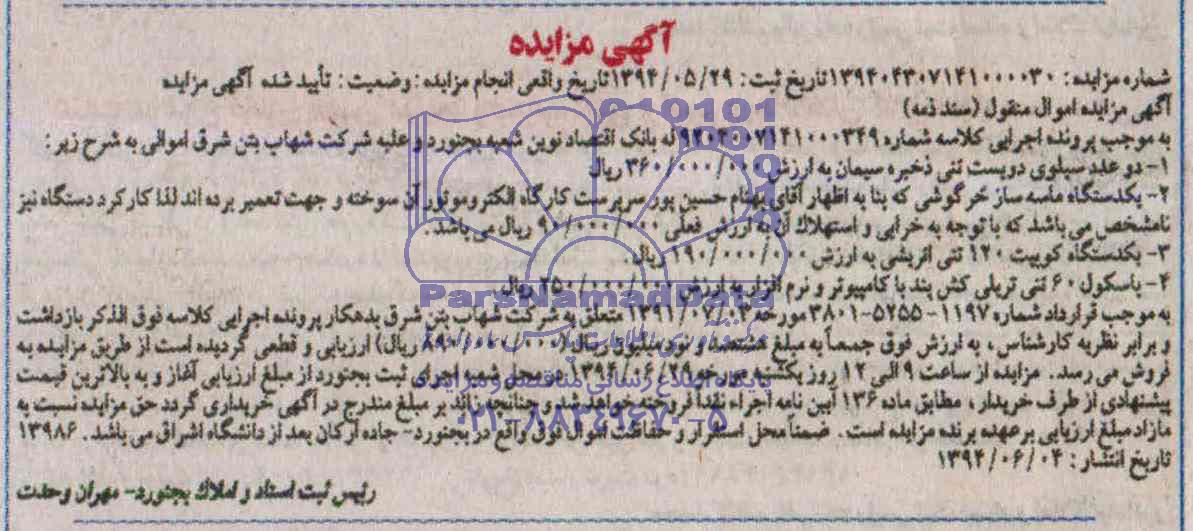 آگهی مزایده
شماره مزایده: ۱۳۹۴۰۴۳۰۷۱۴۱۰۰۰۰۳۰ تاریخ ثبت: ۱۳۹۴/۰۵/۲۹ تاریخ واقعی انجام مزایده: وضعیت: تأیید شده آگهی مزایده
آگهی مزایده اموال منقول (سند ذمه)
به موجب پرونده اجرایی کلاسه شماره ۹۲۰۴۰۰۷۱۴۱۰۰۰۳۴۹ له بانک اقتصاد نوین شعبه بجنورد و علیه شرکت شهاب بتن شرق اموالی به شرح زیر:
۱- دو عدد سیلوی دویست تنی ذخیره سیمان به ارزش ۳۶۰/۰۰۰/۰۰۰ ریال
۲- یکدستگاه ماسه ساز خرگوشی که بنا به اظهار آقای بهنام حسین پور سرپرست کارگاه الکتروموتور آن سوخته و جهت تعمیر برده اند لذا کارکرد دستگاه نیز
نامشخص می باشد که با توجه به خرابی و استهلاک آن به ارزش فعلی ۹۰/۰۰۰/۰۰۰ ریال می باشد.
۳- یکدستگاه کوبیت ۱۲۰ تنی اتریشی به ارزش ۱۹۰/۰۰۰/۰۰۰ ریال
۴- باسکول ۶۰ تنی تریلی کش پند با کامپیوتر و نرم افزار به ارزش ۲۵۰/۰۰۰/۰۰۰ ریال
به موجب قرارداد شماره ۱۱۹۷-۵۲۵۵-۳۸۰۱ مورخه ۱۳۹۱/۰۷/۰۳ متعلق به شرکت شهاب بتن شرق بدهکار پرونده اجرایی کلاسه فوق الذکر بازداشت
و برابر نظریه کارشناس، به ارزش فوق جمعاً به مبلغ هشتصد و نود میلیون ریال (۸۹۰/۰۰۰/۰۰۰ ریال) ارزیابی و قطعی گردیده است از طریق مزایده به
فروش می رسد. مزایده از ساعت ۹ الی ۱۲ روز یکشنبه مورخه ۱۳۹۴/۰۶/۲۹ در محل شعبه اجرای ثبت بجنورد از مبلغ ارزیابی آغاز و به بالاترین قیمت
پیشنهادی از طرف خریدار، مطابق ماده ۱۳۶ آیین نامه اجراء نقداً فروخته خواهد شد و چنانچه زائد بر مبلغ مندرج در آگهی خریداری گردد حق مزایده نسبت به
مازاد مبلغ ارزیابی بر عهده برنده مزایده است. ضمناً محل استقرار و حفاظت اموال فوق واقع در بجنورد- جاده ارکان بعد از دانشگاه اشراق می باشد. ۱۳۹۸۶
تاریخ انتشار: ۱۳۹۴/۰۶/۰۴
رئیس ثبت اسناد و املاک بجنورد- مهران وحدت
ParsNamadData
پایگاه اطلاع رسانی مناقصه و مزایده
۰۲۱-۸۸۳۴۹۶۷۰-۵